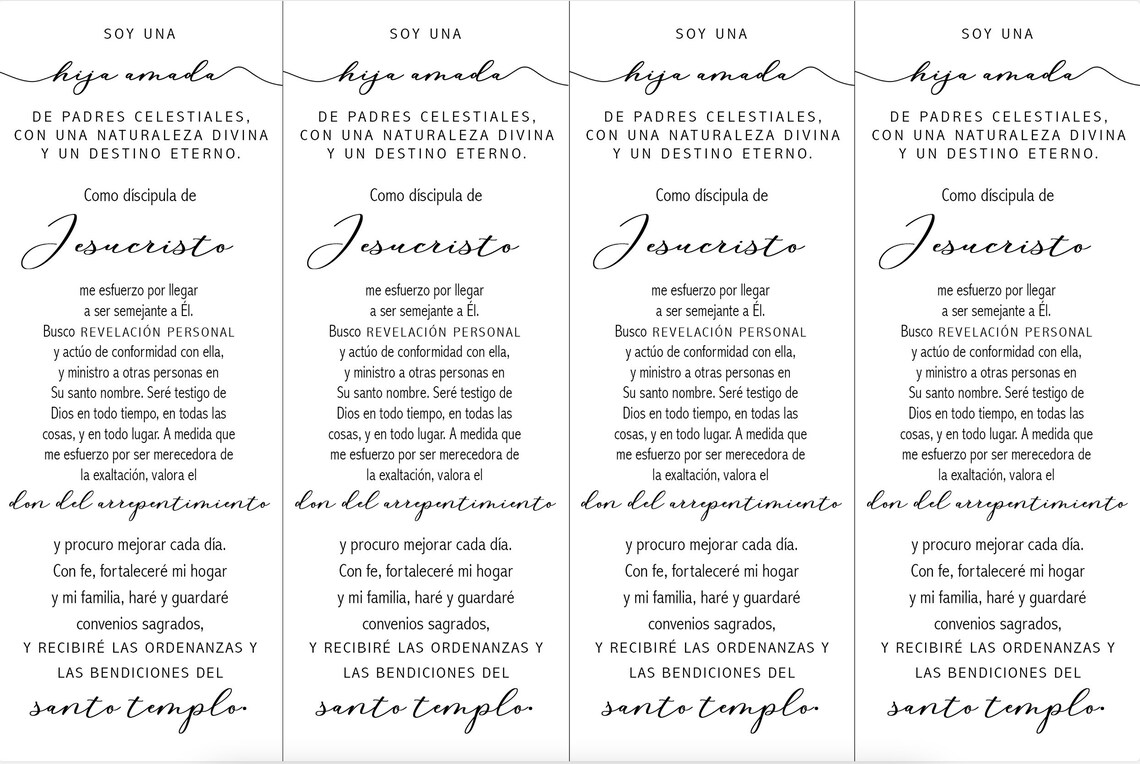 SOY UNA
hija amada
DE PADRES CELESTIALES,
CON UNA NATURALEZA DIVINA
Y UN DESTINO ETERNO.
Como díscipula de
Jesucristo
me esfuerzo por llegar
a ser semejante a Él.
Busco REVELACIÓN PERSONAL
y actúo de conformidad con ella,
y ministro a otras personas en
Su santo nombre. Seré testigo de
Dios en todo tiempo, en todas las
cosas, y en todo lugar. A medida que
me esfuerzo por ser merecedora de
la exaltación, valora el
don del arrepentimiento
y procuro mejorar cada día.
Con fe, fortaleceré mi hogar
y mi familia, haré y guardaré
convenios sagrados,
Y RECIBIRÉ LAS ORDENANZAS Y
LAS BENDICIONES DEL
santo templo.
SOY UNA
hija amada
DE PADRES CELESTIALES,
CON UNA NATURALEZA DIVINA
Y UN DESTINO ETERNO.
Como díscipula de
Jesucristo
me esfuerzo por llegar
a ser semejante a Él.
Busco REVELACIÓN PERSONAL
y actúo de conformidad con ella,
y ministro a otras personas en
Su santo nombre. Seré testigo de
Dios en todo tiempo, en todas las
cosas, y en todo lugar. A medida que
me esfuerzo por ser merecedora de
la exaltación, valora el
don del arrepentimiento
y procuro mejorar cada día.
Con fe, fortaleceré mi hogar
y mi familia, haré y guardaré
convenios sagrados,
Y RECIBIRÉ LAS ORDENANZAS Y
LAS BENDICIONES DEL
santo templo.
SOY UNA
hija amada
DE PADRES CELESTIALES,
CON UNA NATURALEZA DIVINA
Y UN DESTINO ETERNO.
Como díscipula de
Jesucristo
me esfuerzo por llegar
a ser semejante a Él.
Busco REVELACIÓN PERSONAL
y actúo de conformidad con ella,
y ministro a otras personas en
Su santo nombre. Seré testigo de
Dios en todo tiempo, en todas las
cosas, y en todo lugar. A medida que
me esfuerzo por ser merecedora de
la exaltación, valora el
don del arrepentimiento
y procuro mejorar cada día.
Con fe, fortaleceré mi hogar
y mi familia, haré y guardaré
convenios sagrados,
Y RECIBIRÉ LAS ORDENANZAS Y
LAS BENDICIONES DEL
santo templo.
SOY UNA
hija amada
DE PADRES CELESTIALES,
CON UNA NATURALEZA DIVINA
Y UN DESTINO ETERNO.
Como díscipula de
Jesucristo
me esfuerzo por llegar
a ser semejante a Él.
Busco REVELACIÓN PERSONAL
y actúo de conformidad con ella,
y ministro a otras personas en
Su santo nombre. Seré testigo de
Dios en todo tiempo, en todas las
cosas, y en todo lugar. A medida que
me esfuerzo por ser merecedora de
la exaltación, valora el
don del arrepentimiento
y procuro mejorar cada día.
Con fe, fortaleceré mi hogar
y mi familia, haré y guardaré
convenios sagrados,
Y RECIBIRÉ LAS ORDENANZAS Y
LAS BENDICIONES DEL
santo templo.